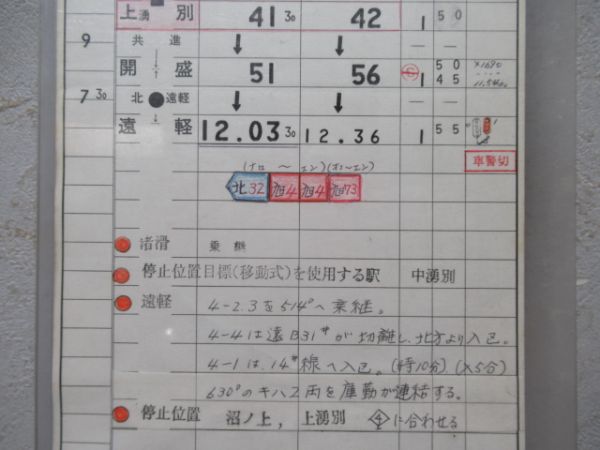 上湧別 41 30 42 1 50
9 共進 ↓ ↓ — —
開盛 51 56 1 50 45 ×1690
7 30 北●遠軽 ↓ ↓ — —
遠軽 12.03 30 12.36 1 55
車警切
(ナヨ 〜 エン)(ホロ〜エン)
北32 旭4 旭4 旭73
渚滑 乗継
停止位置目標(移動式)を使用する駅 中湧別
遠軽 4-2.3を514°へ乗継。
4-4は遠B31#が切離し、北方より入区。
4-1は、14#線へ入区。(時10分)(入5分)
630°のキハ2両を庫勤が連結する。
停止位置 沼ノ上, 上湧別 4に合わせる